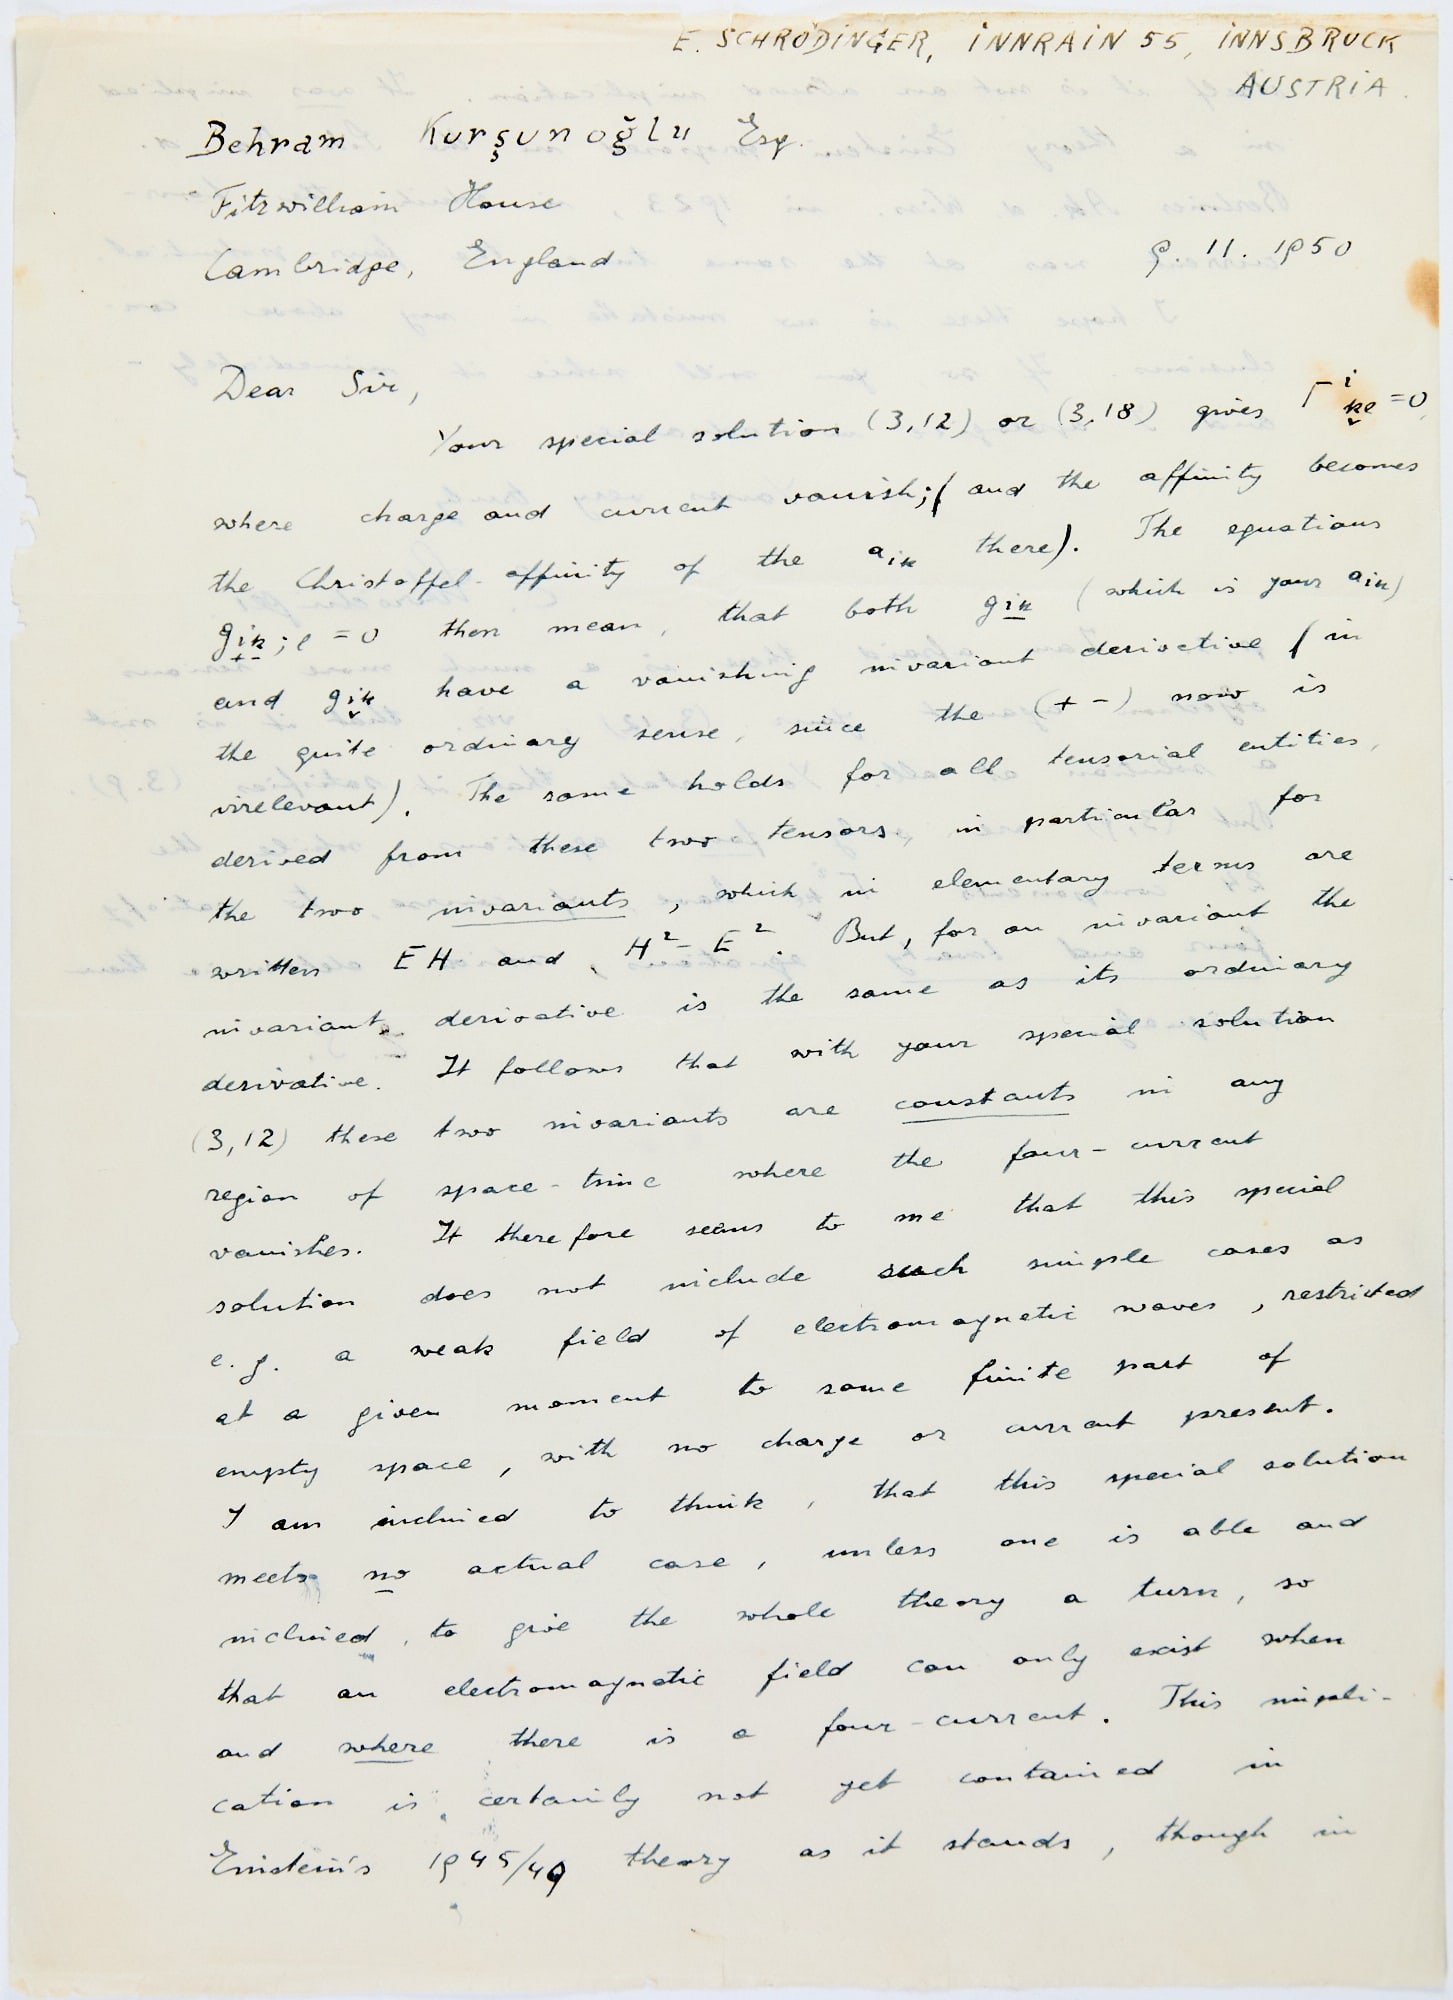 E. SCHRÖDINGER, INNRAIN 55, INNSBRUCK
AUSTRIA.
Behram Kurşunoğlu Esq.
Fitzwilliam House
Cambridge, England
9. 11. 1950
Dear Sir,
Your special solution (3,12) or (3,18) gives Γ^i_{kl} = 0,
where charge and current vanish; (and the affinity becomes
the Christoffel-affinity of the a_{ik} there). The equations
g_{ik};l = 0 then mean, that both g_{ik} (which is your a_{ik})
and g_{ik} have a vanishing invariant derivative (in
the quite ordinary sense, since the (+ -) now is
irrelevant). The same holds for all tensorial entities,
derived from these two tensors, in particular for
the two invariants, which in elementary terms are
written EH and H² - E². But, for an invariant the
invariant derivative is the same as its ordinary
derivative. It follows that with your special solution
(3,12) these two invariants are constants in any
region of space-time where the four-current
vanishes. It therefore seems to me that this special
solution does not include such simple cases as
e.g. a weak field of electromagnetic waves, restricted
at a given moment to some finite part of
empty space, with no charge or current present.
I am inclined to think, that this special solution
meets no actual case, unless one is able and
inclined, to give the whole theory a turn, so
that an electromagnetic field can only exist when
and where there is a four-current. This impli-
cation is certainly not yet contained in
Einstein's 1945/49 theory as it stands, though in